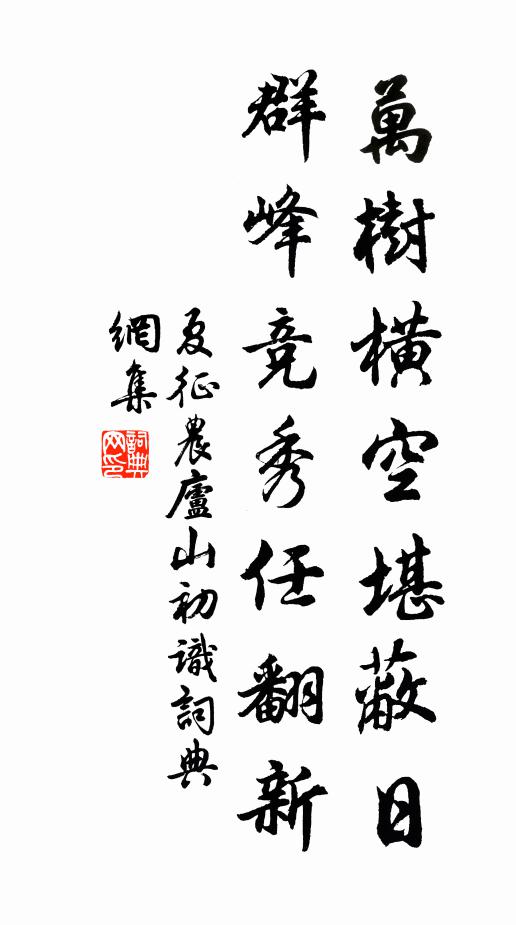 萬樹橫空堪蔽日
群峰竞秀任翻新
夏征農廬山初識詞典
網集
詞典
网印